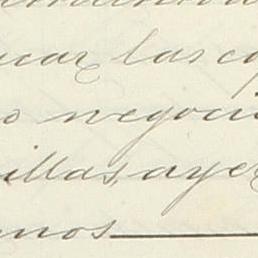 ucar las co
o negoci
illas, ayer
nos